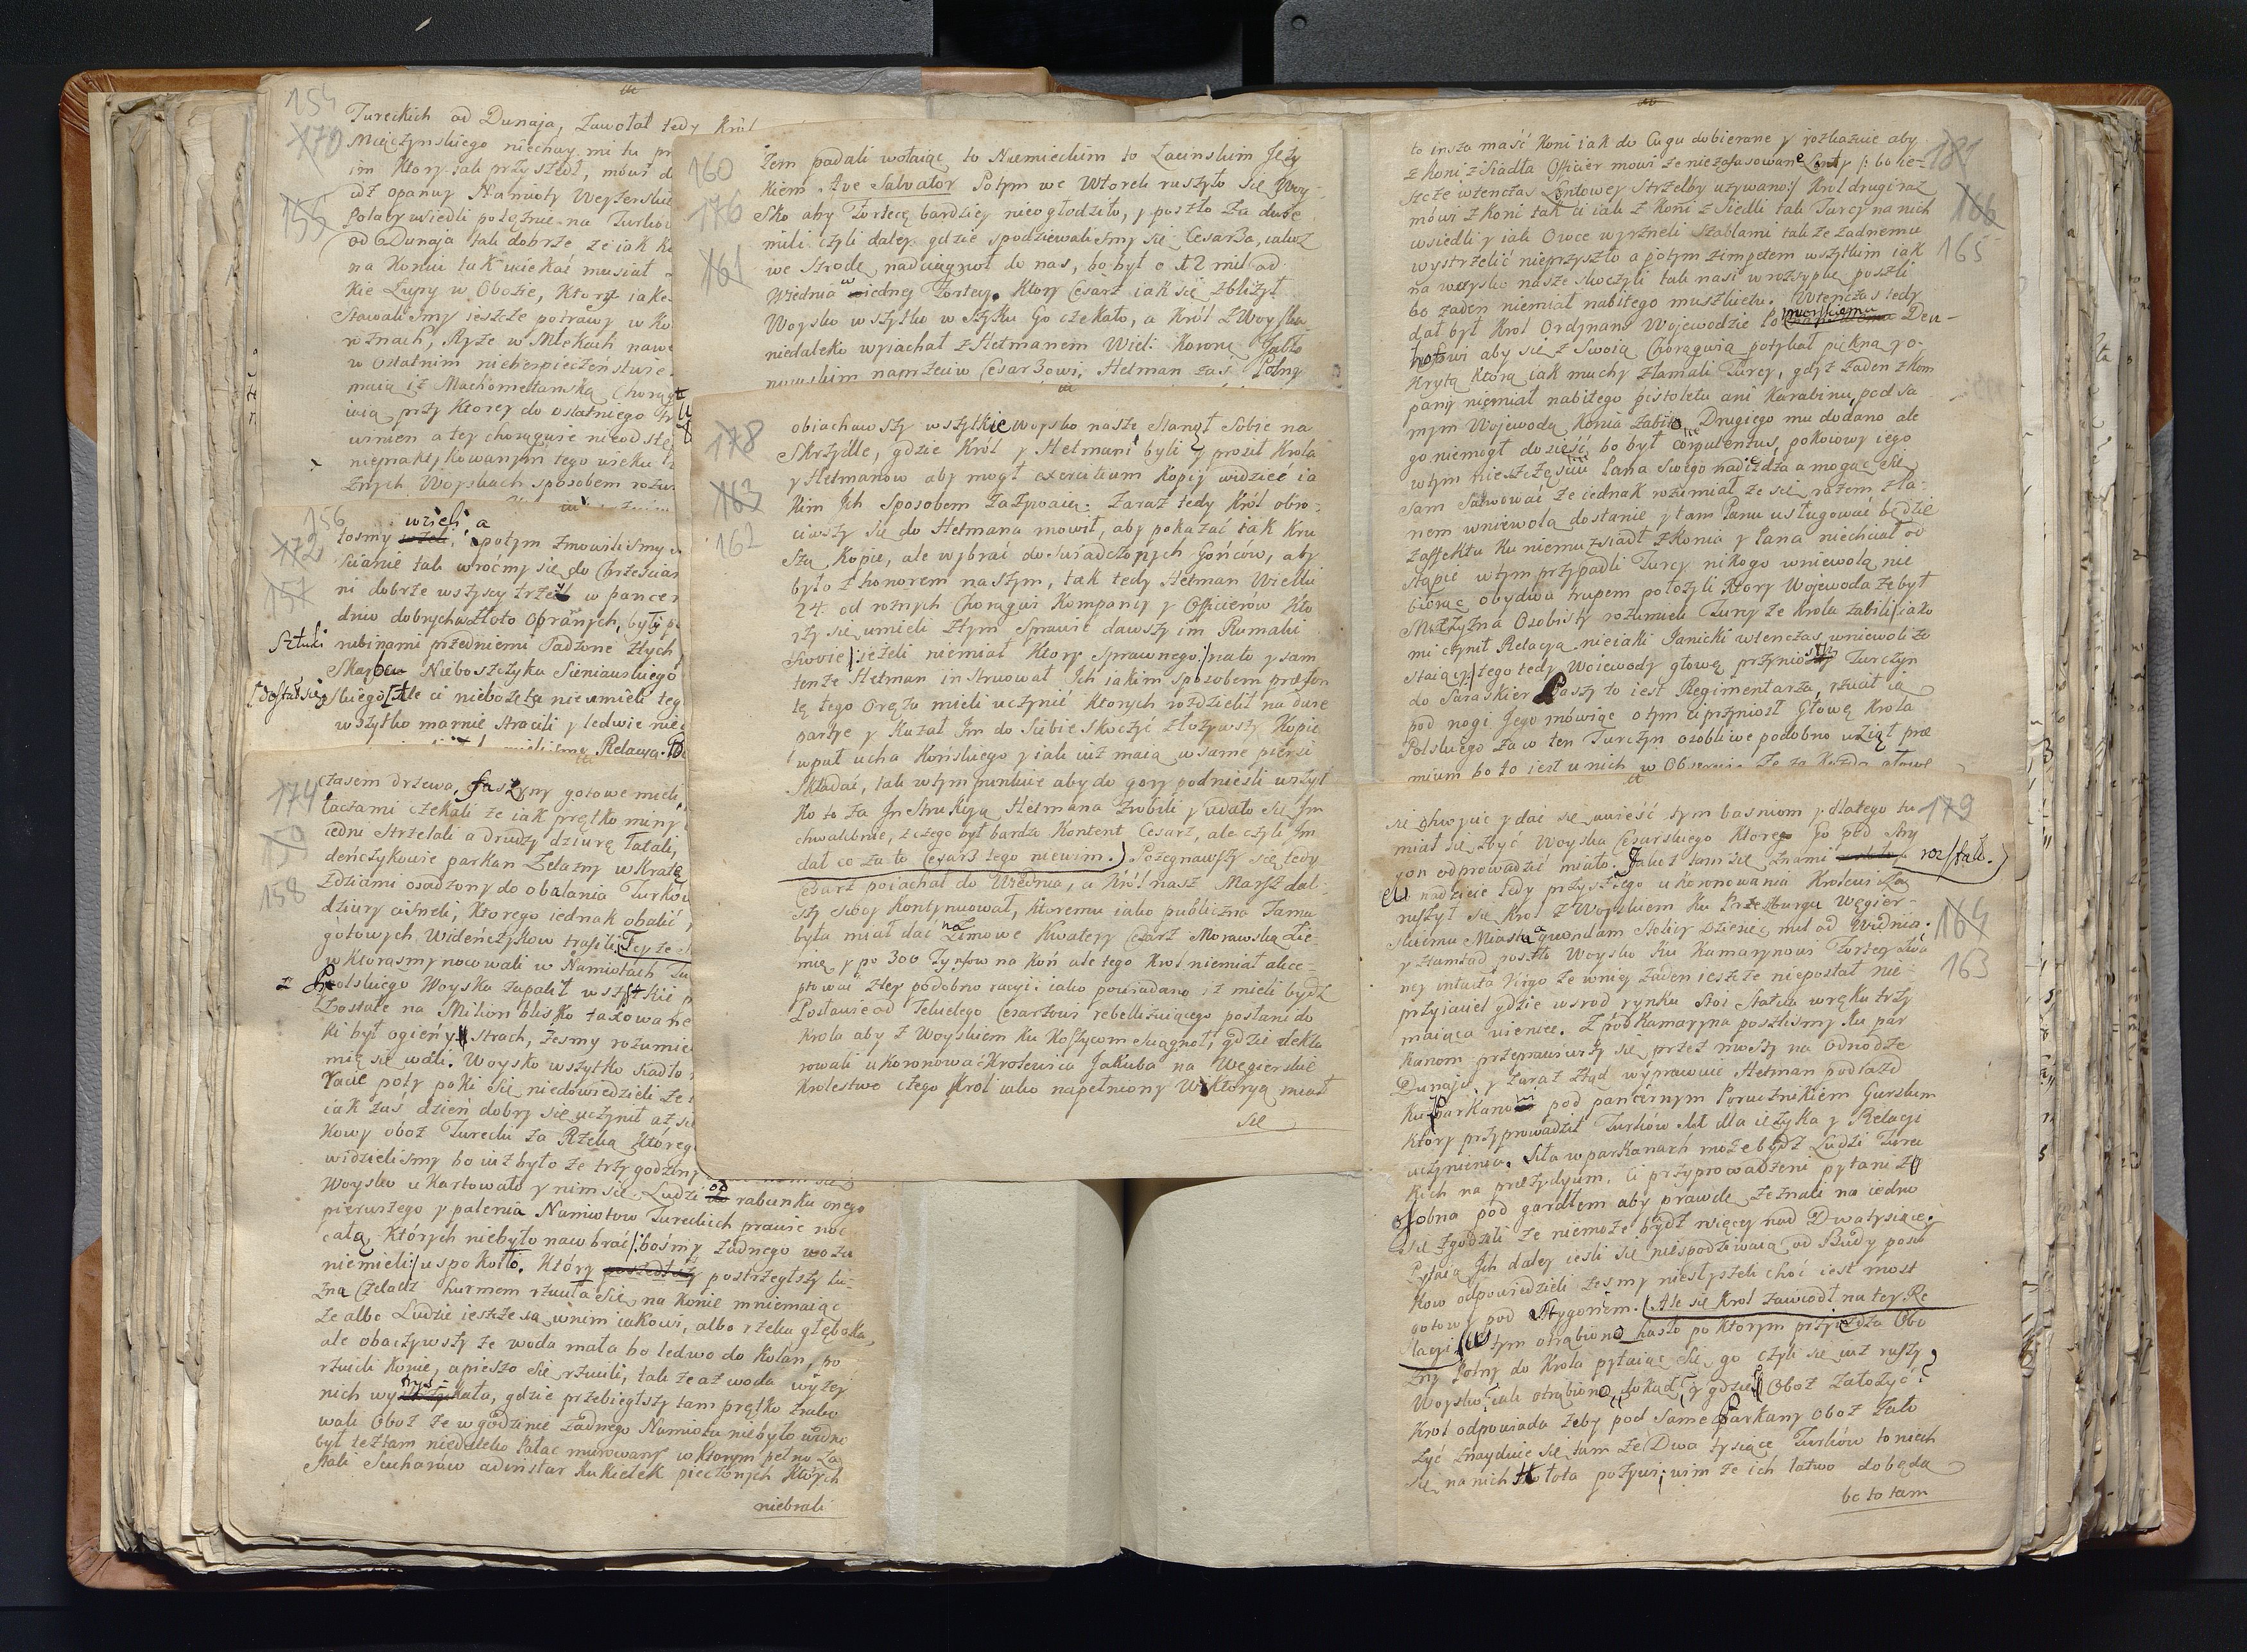 154
170
155
Tureckich od Dunaja, zawołał tedy Król
Miączynskiego niechay mi tu
im Ktory tak przyszedł, mowi
iuż opanuy Namioty Wezerskie
Polacy wsiedli potężnie na Turkow
od Dunaja tak dobrze że iak
na Koniu tak uciekać musiał
kie Zupy w Obozie, Ktory iak
Stawalismy ieszcze potrawy w Ko
rożnach, Ryże w Mlekach
w Ostatnim niebezpieczeństwie
maią iż Machometanską Chorąg
wią przy Ktorey do ostatniego
winien a tey chorągwie nieodstę
niepraktykowanym tego wieku
żnych Woyskach sposobem
156
172
157
wzieli a
łosmy potym zmowilismy
Scianie tak wroćmy się do Chrzescian
ni dobrze wszyscy trzey w pancer
dnio dobrych złoto Opranych, były
Sztuki rubinami przedniemi Sadzone
Skarbcu Nieboszczyka Sieniawskiego
dostał się skiego ale ci niebożęta nieumieli
wszytko marnie stracili y ledwie
Relacya
174
159
158
czasem drzewa, faszyny gotowe mieli,
taczami czekali że iak prętko miny
iedni Strzelali a drudzy dziurę łatali,
deńczykowie parkan Żelazny w Kratę
Zdziami osadzony do obalania Turkow
dziury cisneli, Ktorego iednak obalić
gotowych Wideńczykow trafili Tey że
w którasmy nocowali w Namiotach
z Polskiego Woyska zapalił wszytkie
Zostałe na Milion blisko taxowane
ki był ogień y strach, żesmy rozumie
mią się wali. Woysko wszytko siadło
racie poty poki się niedowiedzieli że
iak zaś dzień dobry się uczynił aż
kowy oboz Turecki za Rzeką
widzielismy bo iuż było że trzy godziny
Woysko ukartowało y nim się Ludzi od rabunku onego
pierwszego y palenia Namiotow Tureckich prawie noc
całą Których niebyło naco brać/: bośmy żadnego woza
niemieli:/ uspokoiło. Który postrzegłszy lu-
zna Czeladz hurmem rzuciła się na Konie mniemaiąc
że albo Ludzie ieszcze są w nim iakowi, albo rzeka głęboka
ale obaczywszy że woda mała bo ledwo do Kolan, po
rzucili Konie, a pieszo się rzucili, tak że aż woda wyżey
nich wytryskała, gdzie przebiegłszy tam prętko zrabo
wali Oboz że w godzinie żadnego Namiotu niebyło widno
był też tam niedaleko Pałac murowany w Ktorym pełno za
stali Sucharów ad instar Kukiełek pieczonych Których
niebrali
160
176
161
żem padali wołaiąc to Niemieckim to Łacinskim Języ
kiem Ave Salvator Potym we Wtorek ruszyło się Woy-
sko aby Fortecę bardziey nieogłodziło, y poszło za dwie
mili czyli daley gdzie spodziewalismy się Cesarza, iakoż
we Srodę nadciągnoł do nas, bo był o 12 mil od
Wiednia w iedney Fortecy. Ktory Cesarz iak się zbliżył
Woysko wszytko w szyku Go czekało, a Król z Woyska
niedaleko wyiachał z Hetmanem Wielk: Koronę Jabło
nowskim naprzeciw Cesarzowi. Hetman zas Polny
178
163
162
obiachawszy wszytkie woysko nasze stanął sobie na
Skrzydle, gdzie Król y Hetmani byli y prosił Krola
y Hetmanow aby mogł exercitium Kopij widzieć ia
kim Jch Sposobem zażywaią. Zaraz tedy Król obro-
ciwszy się do Hetmana mowił, aby pokazać iak Kru
szą Kopie, ale wybrać doświadczonych Gońców, aby
było z honorem naszym, tak tedy Hetman Wielki
24. od rożnych Chorągwi Kompanij y Officierów Kto
rzy się umieli z tym Sprawić dawszy im Rumaki
Swoie/: ieżeli niemiał Ktory Sprawnego :/ na to y sam
tenże Hetman instruował Jch iakim sposobem prezen
tę tego Oręża mieli uczynić Ktorych rozdzielił na dwie
partye y Kazał Jm do siebie skoczyć złożywszy Kopie
wpuł ucha Końskiego y iak iuż maią w same piersi
Składać, tak w tym punkcie aby do gory podnieśli wszyt
ko to za Jnstrukcyą Hetmana zrobili y udało się Jm
chwalebnie, z czego był bardzo Kontent Cesarz, ale czyli Jm
dał co za to Cesarz tego niewim.) Pożegnawszy się tedy
Cesarz poiachał do Wiednia, a Król nasz Marsz dal-
szy swoy Kontynuował, ktoremu iako publiczna Fama
była miał dać na Zimowe Kwatery Cesarz Morawską Zie-
mię y po 300 Tynfow na Koń ale tego Krol niemiał akce-
ptować z tey podobno racyi: iako powiadano iż mieli bydz
Posłowie od Tekelego Cesarzowi rebellizuiącego posłani do
Krola aby z Woyskiem Ku Koszycom sciągnoł, gdzie dekla
rowali ukoronować Krolewica Jakuba na Węgierskie
Krolestwo czego Krol iako napełniony Wiktoryą miał
się
181
166
165
to insza maść Koni iak do Cugu dobierane y rozkazuie aby
z Koni zSiadła Officier mowi że niezafasowane Lonty /: bo ie-
szcze wtenczas Lontowey Strzelby uzywano:/ Krol drugi raz
mówi z Koni tak ci iak z Koni z Siedli tak Turcy na nich
wsiedli y iak Owce wyrzneli Szablami tak że żadnemu
wystrzelić nieprzyszło a potym z impetem wszytkim iak
na woysko nasze skoczyli tak nasi w rozsypkę poszli
bo żaden niemiał nabitego muszkietu. Wtenczas tedy
dał był Krol Ordynans Wojewodzie Pomorskiemu Den-
hofowi aby się z Swoią Chorągwią potykał piękną y o-
krytą którą iak muchy złamali Turcy, gdyż żaden z kom
panij niemiał nabitego pistoletu ani Karabinu, pod sa
mym Wojewodą Konia zabito Drugiego mu dodano ale
go niemogł dosieść bo był corpulentus, pokoiowy iego
w tym nieszczęściu Pana Swego nadieżdża a mogąc się
sam Salwować że iednak rozumiał że się razem z Pa-
nem w niewolą dostanie y tam Panu usługować będzie
z affektu ku niemu zsiadł z konia y Pana niechciał od
stąpić w tym przypadli Turcy nikogo w niewolą nie
biorąc obydwu trupem położyli Ktory Wojewoda że był
Mężyzna Osobisty rozumieli Turcy że Krola zabili/ iako
mi czynił Relacyą nieiaki Janicki wtenczas w niewoli zo
staiący/ tego tedy Woiewody głowę przyniosłszy Turczyn
do Saraskier Paszy to iest Regimentarza, rzucił ią
pod nogi Jego mówiąc otym ci przyniosł Głowę Krola
Polskiego za co ten Turczyn osobliwe podobno wziął præ
mium bo to iest u nich w Obserwie że za Każdą głowę
179
164
163
się chwycić y dać się uwieść tym basniom y dlatego tu
miał się zbyć Woyska Cesarskiego Ktorego Go pod Stry
gon odprowadzić miało. Jakoż tam się z nami rozstali.)
W nadzieie tedy przyszłego ukoronowania Krolewica
ruszył się Krol z Woyskiem Ku Przezburgu Węgier-
skiemu Miastu quondam Stolicy dziesięć mil od Widnia.
y ztamtąd poszło Woysko Ku Kamarynowi Fortecy zwa
ney intacta Virgo że w niey żaden ieszcze niepostał nie-
przyiaciel gdzie wsrod rynku stoi Statua w ręku trzy
maiąca wieniec. Z pod Kamaryna poszlismy Ku par
kanom przeprawiwszy się przez mosty na Odnodze
Dunaju, y zaraz ztąd wyprawuie Hetman podiazd
Ku Parkanowi pod pancernym Porucznikiem Gurskim
Ktory przyprowadził Turków dla ięzyka y Relacyi
uczynienia, siła w parkanach może bydz Ludzi Turec
kich na prezydyum. Ci przyprowadzeni pytani z
osobna pod gardłem aby prawdę zeznali na iedno
się zgodzili że niemoże bydz więcey nad Dwa tysiące.
Pytaią Jch daley iesli się niespodziewaią od Budy posił
kow odpowiedzieli żesmy niesłyszeli choć iest most
gotowy pod Strygoniem. (Ale się Krol zawiodł na tey Re
lacyi) W tym otrąbiono hasło po Ktorym przyieżdża Obo
zny Polny do Krola pytaiąc się go czyli się iuż ruszy
Woysko iak otrąbiono, dokąd, y gdzie Oboz założyć?
Krol odpowiada żeby pod Same Parkany Oboz zało
żyć znayduie się tam ze Dwa tysiące Turków to niech
się na nich hołota pożywi, wim że ich łatwo dobędą
bo to tam